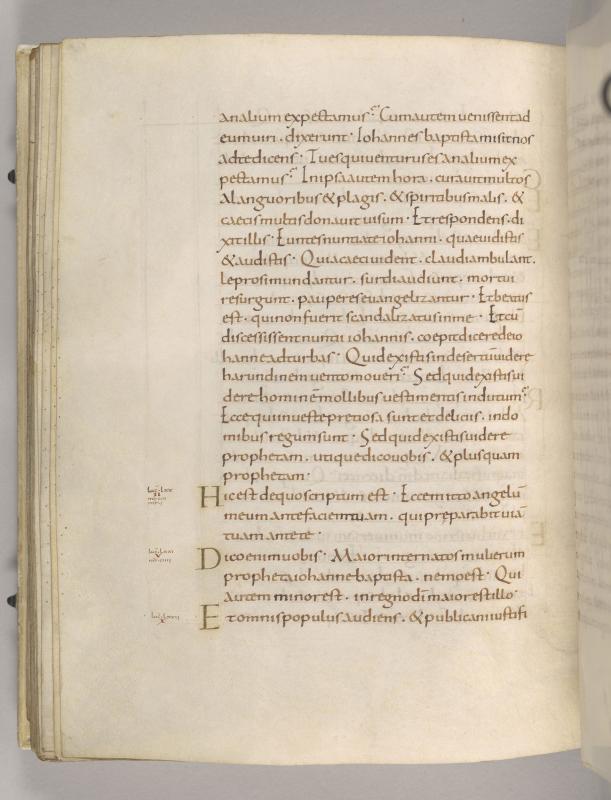 analium expectamus. Cumautem venissent ad
eum viri. dixerunt. Iohannes baptista misit nos
ad te dicens. Tu es qui venturus es an alium ex
pectamus. In ipsa autem hora. curavit multos
a languoribus & plagis. & spiritibus malis. &
caecis multis donavit visum. Et respondens. di
xit illis. Euntes nuntiate iohanni. quae vidistis
& audistis. Quia caeci vident. claudi ambulant.
leprosi mundantur. surdi audiunt. mortui
resurgunt. pauperes evangelizantur. Et beatus
est. qui non fuerit scandalizatus in me. Et cū
discessissent nuntii iohannis. coepit dicere de io
hanne ad turbas. Quid existis in desertū videre
harundinem vento moveri. Sed quid existis vi
dere hominē mollibus vestimentis indutum.
Ecce qui in veste pretiosa sunt et deliciis. in do
mibus regum sunt. Sed quid existis videre
prophetam. utique dico vobis. & plus quam
prophetam.
Hic est de quo scriptum est. Ecce mitto angelū
meum ante faciem tuam. qui pręparabit viā
tuam ante te.
Dico enim vobis. Maior inter natos mulierum
propheta iohanne baptista. nemo est. Qui
autem minor est. in regno dī maior est illo.
Et omnis populus audiens. & publicani iustifi